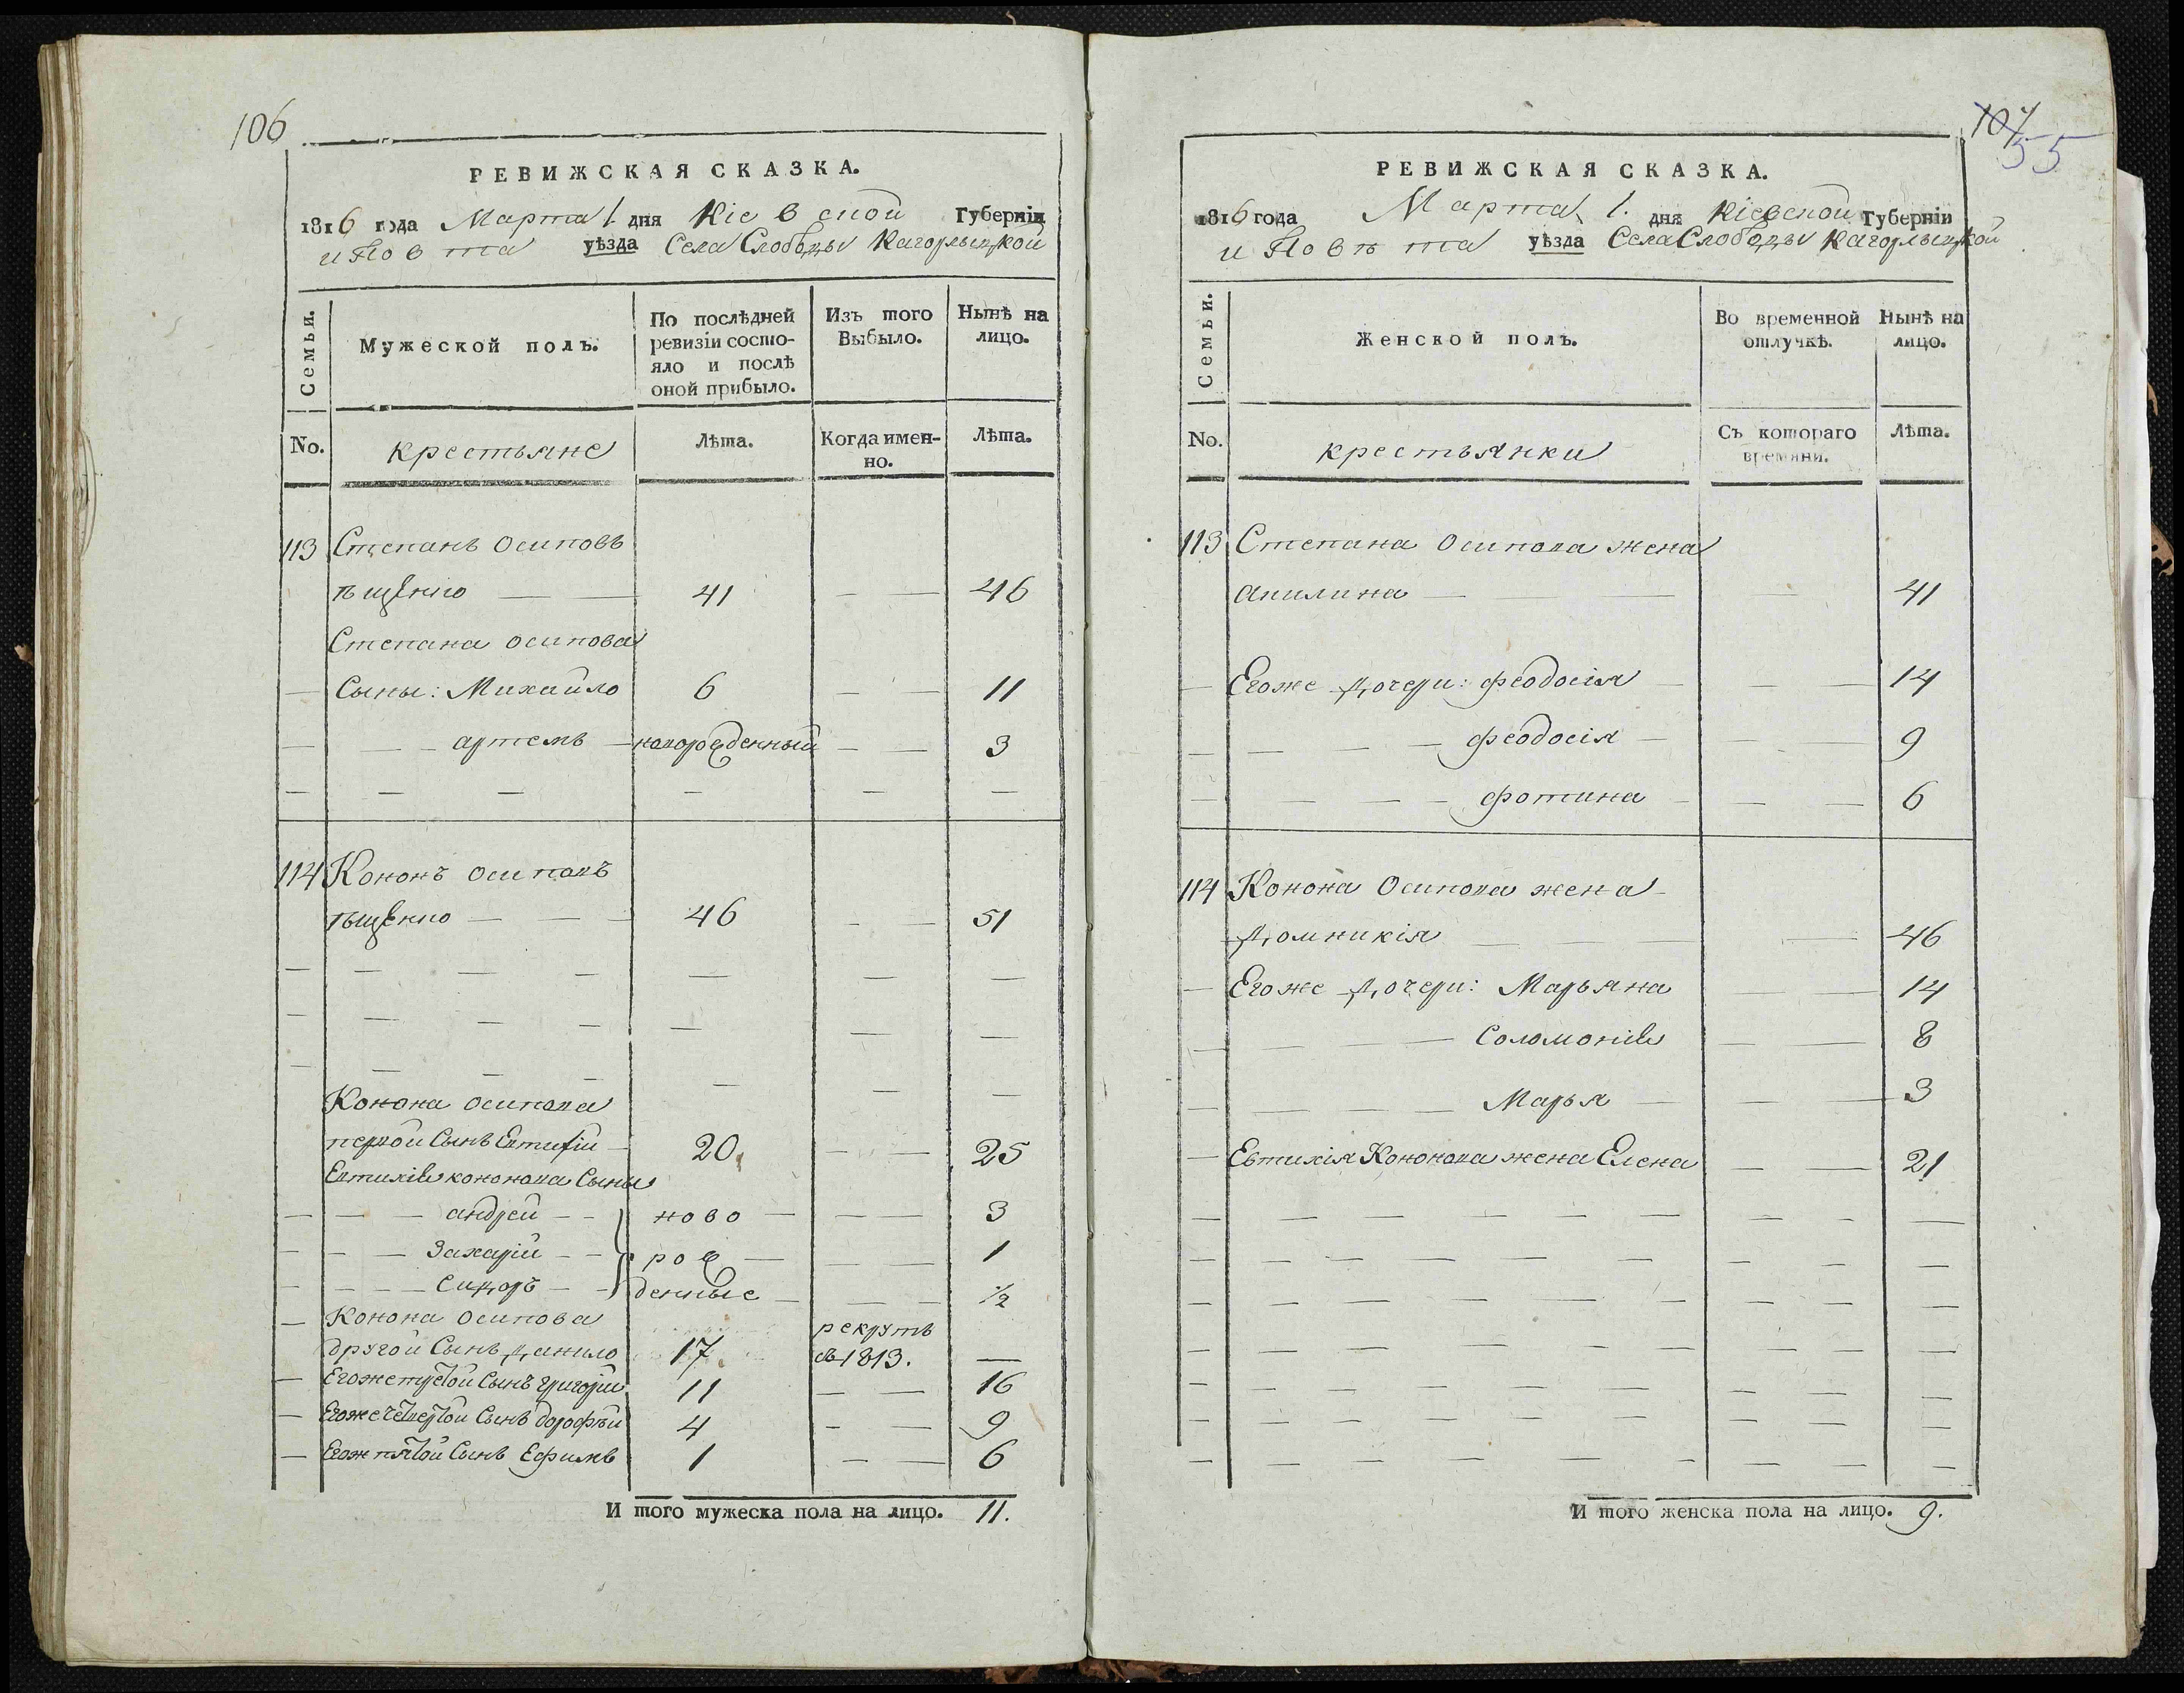 106
РЕВИЖСКАЯ СКАЗКА.
1816 года Марта 1. дня Кіевской Губерніи
и Повта уѣзда Села Слободы Кагорлыцкой
Семьи.
Мужеской полъ.
По послѣдней ревизіи состо-
яло и послѣ оной прибыло.
Изъ того Выбыло.
Нынѣ на лицо.
No.
крестьяне
Лѣта.
Когда имен-
но.
Лѣта.
113 Степанъ Осиповъ
41 — — 46
Степана осипова
— Сыны: Михайло 6 — — 11
— — — артемъ — новорожденный — — 3
114 Кононъ Осиповъ
46 — — 51
Конона осипова
первой Сынъ Евтихій — 20. — — 25
Евтихія кононова Сыны
— — — андрей — — ново — — — 3
— — — Захарій — — рож — — — 1
— — — Сидоръ — — денные — — — 1/2
— Конона осипова рекрутъ
другой Сынъ Данило 17 въ 1813. —
— Егоже третой Сынъ григорій 11 — — 16
— Егоже четвертой Сынъ дорофѣй 4 — — 9
— Егож пятой Сынъ Ефимъ 1 — — 6
И того мужеска пола на лицо. 11.
107
55
РЕВИЖСКАЯ СКАЗКА.
1816 года Марта 1. дня Кіевской Губерніи
и Повѣта уѣзда Села Слободы Кагорлыцкой
Семьи.
Женской полъ.
Во временной отлучкѣ.
Нынѣ на лицо.
No.
крестьянки
Съ котораго времяни.
Лѣта.
113 Степана Осипова жена
акилина — — — — 41
— Егоже Дочери: феодосія — — — 14
— — — — — феодосія — — — 9
— — — — фотина — — — 6
114 Конона Осипова жена —
Домникія — — — — 46
— Егоже Дочери: Марьяна — — 14
— — — — Соломонія — — 8
— — — — — Марья — — — 3
— Евтихія Кононова жена Елена — — 21
И того женска пола на лицо. 9.